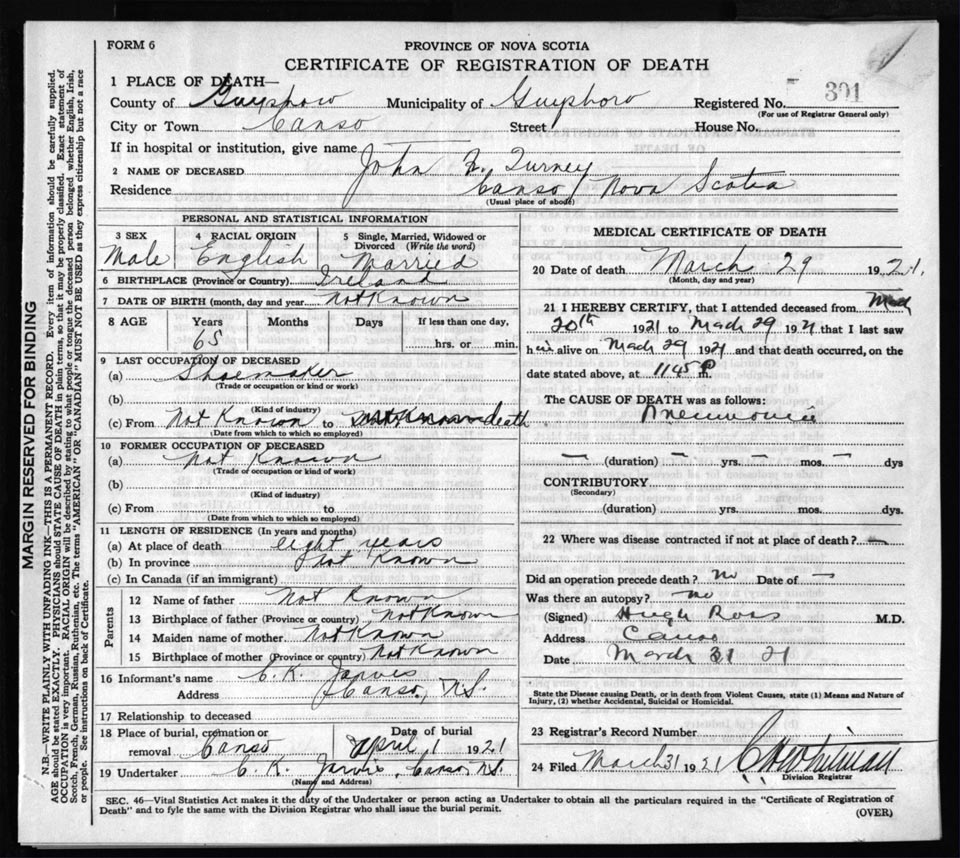 FORM 6
PROVINCE OF NOVA SCOTIA
CERTIFICATE OF REGISTRATION OF DEATH
1 PLACE OF DEATH—
County of Guysboro Municipality of Guysboro Registered No. 391
(For use of Registrar General only)
City or Town Canso Street House No.
If in hospital or institution, give name
2 NAME OF DECEASED John F. Turney
Residence Canso, Nova Scotia
(Usual place of abode)
PERSONAL AND STATISTICAL INFORMATION
3 SEX 4 RACIAL ORIGIN 5 Single, Married, Widowed or
Divorced (Write the word)
Male English Married
6 BIRTHPLACE (Province or Country) Ireland
7 DATE OF BIRTH (month, day and year) Not Known
8 AGE Years Months Days If less than one day,
65 hrs. or min.
9 LAST OCCUPATION OF DECEASED
(a) Shoemaker
(Trade or occupation or kind of work)
(b)
(Kind of industry)
(c) From Not Known to death
(Date from which to which so employed)
10 FORMER OCCUPATION OF DECEASED
(a) Not Known
(Trade of occupation or kind of work)
(b)
(Kind of industry)
(c) From to
(Date from which to which so employed)
11 LENGTH OF RESIDENCE (In years and months)
(a) At place of death eight years
(b) In province Not Known
(c) In Canada (if an immigrant)
Parents
12 Name of father Not Known
13 Birthplace of father (Province or country) Not Known
14 Maiden name of mother Not Known
15 Birthplace of mother (Province or country) Not Known
16 Informant's name C. K. Jarvis
Address Canso, N.S.
17 Relationship to deceased
18 Place of burial, cremation or Date of burial
removal Canso April 1 1921
19 Undertaker C. K. Jarvis, Canso, N.S.
(Name and Address)
MEDICAL CERTIFICATE OF DEATH
20 Date of death March 29 1921.
(Month, day and year)
21 I HEREBY CERTIFY, that I attended deceased from Mach
20th 1921 to Mach 29 1921 that I last saw
h im alive on Mach 29 1921 and that death occurred, on the
date stated above, at 1145 P m.
The CAUSE OF DEATH was as follows:
Pneumonia
— (duration) — yrs. — mos. — dys
CONTRIBUTORY
(Secondary)
(duration) yrs. mos. dys.
22 Where was disease contracted if not at place of death? —
Did an operation precede death? no Date of —
Was there an autopsy? no
(Signed) Hugh Ross M.D.
Address Canso
Date March 31 21
State the Disease causing Death, or in death from Violent Causes, state (1) Means and Nature of
Injury, (2) whether Accidental, Suicidal or Homicidal.
23 Registrar's Record Number
24 Filed March 31 1921
Division Registrar
SEC. 46—Vital Statistics Act makes it the duty of the Undertaker or person acting as Undertaker to obtain all the particulars required in the "Certificate of Registration of
Death" and to fyle the same with the Division Registrar who shall issue the burial permit.
(OVER)
MARGIN RESERVED FOR BINDING
N.B.—WRITE PLAINLY WITH UNFADING INK—THIS IS A PERMANENT RECORD. Every item of information should be carefully supplied.
AGE should be stated EXACTLY. PHYSICIANS should STATE CAUSE OF DEATH in plain terms, so that it may be properly classified. Exact statement of
OCCUPATION is very important. RACIAL ORIGIN will be described by stating to what people or tongue the deceased person belonged whether English, Irish,
Scotch, French, German, Russian, Ruthenian, etc. The terms "AMERICAN" OR "CANADIAN" MUST NOT BE USED as they express citizenship but not a race
or people. See instructions on back of Certificate.